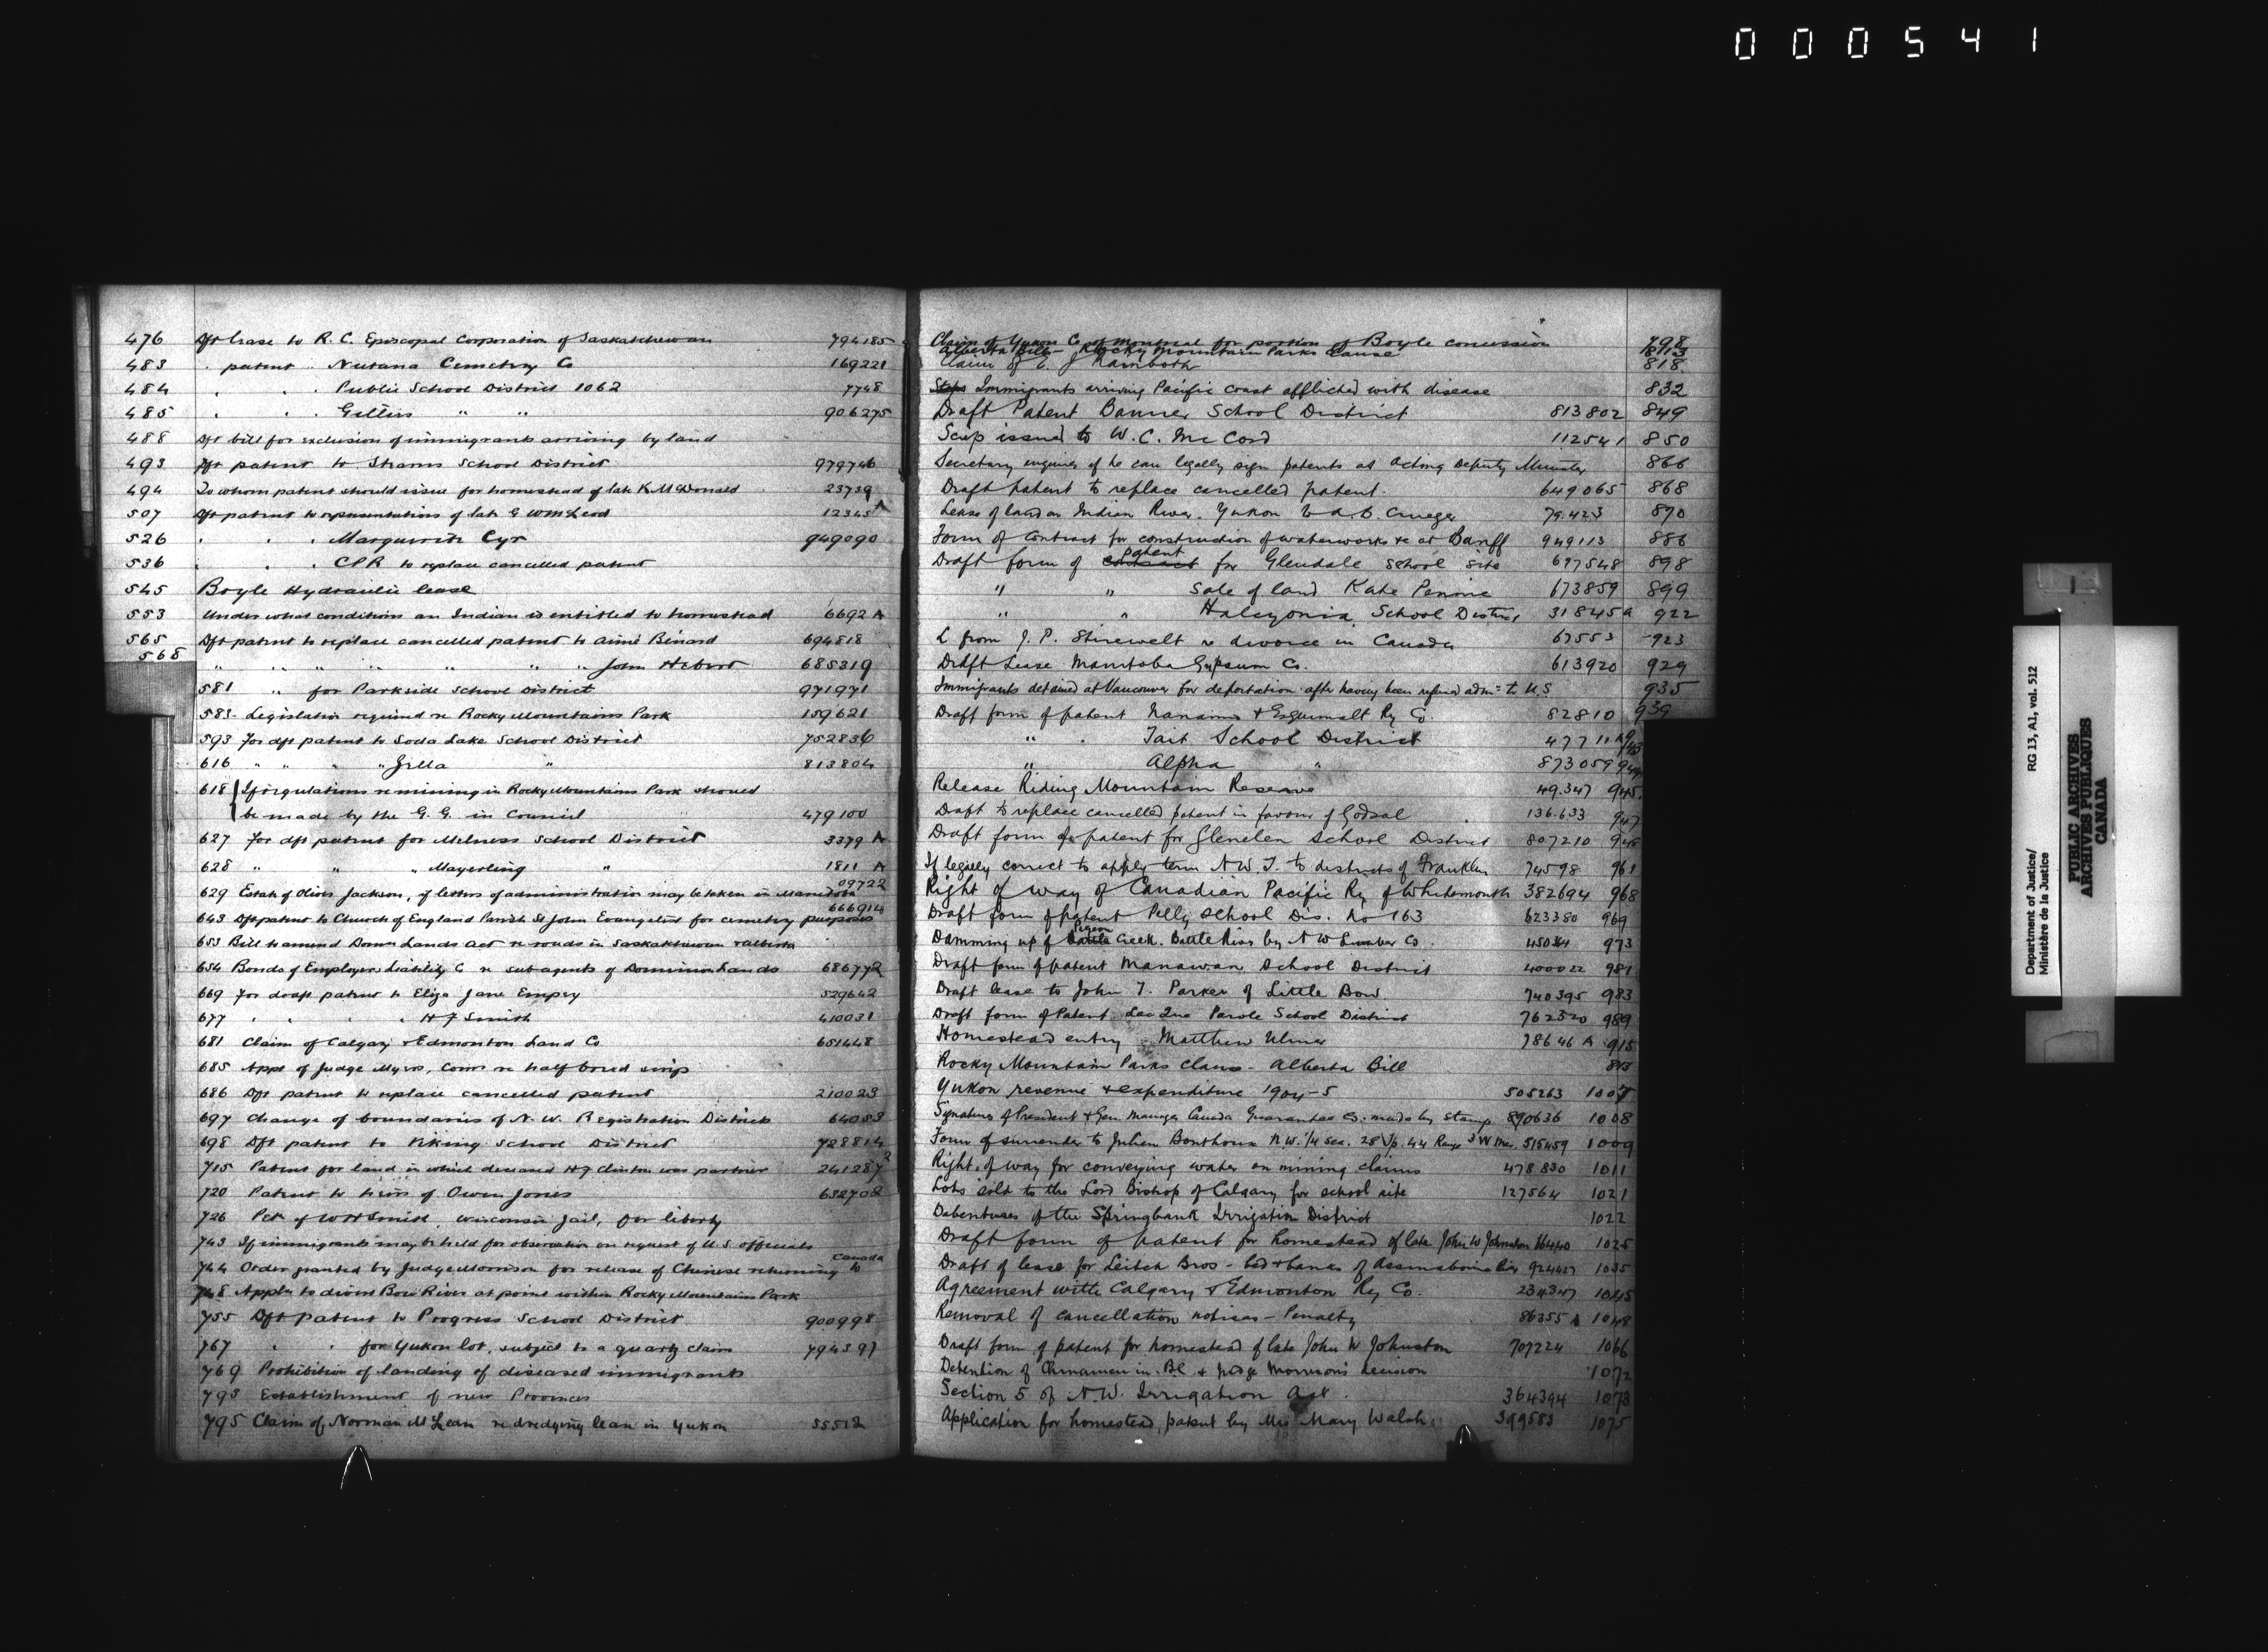 000541
476 Dft lease to R. C. Episcopal Corporation of Saskatchewan 794185
483 " patent " Nutana Cemetry Co 169221
484 " " " Public School District 1062 7748
485 " " " " " 906275
488 Dft bill for exclusion of immigrants arriving by land
493 Dft patent to School District 979746
494 To whom patent should issue for homestead of late K McDonald 23739
507 Dft patent to representatives of late G W McLeod 12345 A
526 " " " Marguerite Cyr 949090
536 " " " CPR to replace cancelled patent
545 Boyle Hydraulic lease
553 Under what conditions an Indian is entitled to homestead 6692 A
565 Dft patent to replace cancelled patent to Aimé Bénard 694818
568 " " " " " " " John Hebert 685319
581 " for Parkside School District 971971
583 Legislation required re Rocky Mountains Park 159621
593 For dft patent to Soda Lake School District 752836
616 " " " " Zella " 813804
618 If regulations re mining in Rocky Mountains Park should
be made by the G. G. in Council 479100
627 For dft patent for Melness School District 3379 A
628 " " " Mayerling " 1811 A
629 Estate of Oliver Jackson, if letters of administration may be taken in Manitoba 09722
643 Dft patent to Church of England Parish St John Evangelist for cemetery purposes 666914
653 Bill to amend Domn Lands Act re roads in Saskatchewan & Alberta
654 Bonds of Employers Liability C re sub agents of Dominion Lands 686772
669 For draft patent to Eliza Jane Empey 529642
677 " " " " H J Smith 410031
681 Claim of Calgary & Edmonton Land Co 651448
685 Appt of Judge Myers, Comr re half breed scrip
686 Dft patent to replace cancelled patent 210023
697 Change of boundaries of N. W. Registration Districts 64053
698 Dft patent to Viking School District 728814
715 Patent for land in which deceased H J Clinton was partner 241287 2
720 Patent to heirs of Owen Jones 632702
726 Pet. of W H Smith, Wisconsin Jail, for liberty
743 If immigrants may be held for observation on request of U.S. officials
744 Order granted by Judge Morrison for release of Chinese returning to Canada
748 Appln to divert Bow River at point within Rocky Mountains Park
755 Dft patent to Progress School District 900998
767 " " for Yukon lot, subject to a quartz claim 794397
769 Prohibition of landing of diseased immigrants
793 Establishment of new Provinces
795 Claim of Norman McLean re dredging lease in Yukon 55512
Claim of Yukon Co of Montreal for portion of Boyle concession 798
Alberta Bill - Rocky Mountain Parks Clause 813
Claim of E. J Rainboth 818
Immigrants arriving Pacific coast afflicted with disease 832
Draft Patent Banner School District 813802 849
Scrip issued to W. C. McCord 112541 850
Secretary enquires if he can legally sign patents as Acting Deputy Minister 866
Draft patent to replace cancelled patent. 649065 868
Lease of land on Indian River. Yukon to A. B. 79.423 870
Form of Contract for construction of waterworks &c at Banff 949113 886
Draft form of contract patent for Glendale School site 697548 898
" " Sale of land Kate 673859 899
" " Halcyonia School District 31845a 922
L from J. P. Shirewelt re divorce in Canada 67553 923
Draft Lease Manitoba Gypsum Co. 613920 929
Immigrants detained at Vancouver for deportation after having been refused admn to U.S 935
Draft form of patent Nanaimo & Esquimalt Ry Co. 82810 939
" " Tait School District 4771
" Alpha " 873059 944
Release Riding Mountain Reserve 49.347 945
Draft to replace cancelled patent in favour of Godsal 136.633 947
Draft form of patent for Glenelen School District 807210 948
If legally correct to apply term N.W.T. to districts of Franklin 74598 961
Right of way of Canadian Pacific Ry of Whitemouth 382694 968
Draft form of patent Pelly School Dis. No 163 623380 969
Damming up of Battle Pigeon Creek. Battle River by N W Lumber Co 973
Draft form of patent Manawan School District 400022 981
Draft lease to John T. Parker of Little Bow 740395 983
Draft form of Patent Lac Que Parole School District 762320 989
Homestead entry Matthew Ulmer 78646 A 915
Rocky Mountain Parks clause - Alberta Bill 813
Yukon revenue & expenditure 1904-5 505263 1007
Signature of President & Gen. Manager Canada Guarantee Co. made by stamp 890636 1008
Form of surrender to Julien Bonthoux N.W. 1/4 Sec. 28 Tp. 44 Range 3 W Mer. 515459 1009
Right of way for conveying water on mining claims 478830 1011
Lots sold to the Lord Bishop of Calgary for school site 127564 1021
Debentures of the Springbank Irrigation District 1022
Draft form of patent for homestead of late John W Johnston 1025
Draft of lease for Leitch Bros - bed & banks of Assiniboine River 924427 1035
Agreement with Calgary & Edmonton Ry Co. 234347 1045
Removal of cancellation notices - Penalty 86355 A 1048
Draft form of patent for homestead of late John W Johnston 707224 1066
Detention of Chinamen in B.C. & Judge Morrison's decision 1072
Section 5 of N.W. Irrigation Act. 364394 1073
Application for homestead patent by Mrs Mary Walsh 399583 1075
Department of Justice/
Ministère de la Justice
RG 13, A1, vol. 512
PUBLIC ARCHIVES
ARCHIVES PUBLIQUES
CANADA